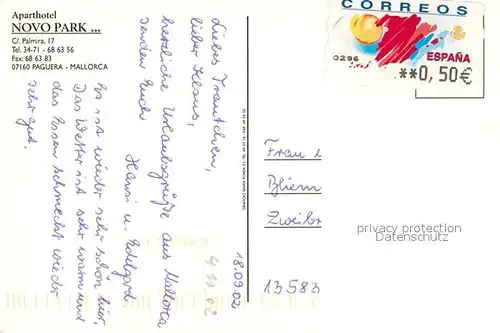 Aparthotel
NOVO PARK ...
C/. Palmira, 17
Tel. 34-71 - 68 63 56
Fax: 68 63 83
07160 PAGUERA - MALLORCA
Liebes Trautchen,
lieber Klaus,
herzliche Urlaubsgrüße aus Mallorca
senden Euch
Hansi u. Edelgard
Es ist wieder sehr schön hier,
Das Wetter ist sehr warm und
das Essen schmeckt wieder
sehr gut.
18.09.02
4.10.02
CORREOS
0296
ESPAÑA
**0,50€
Frau
Zweibr
13583
privacy protection
Datenschutz